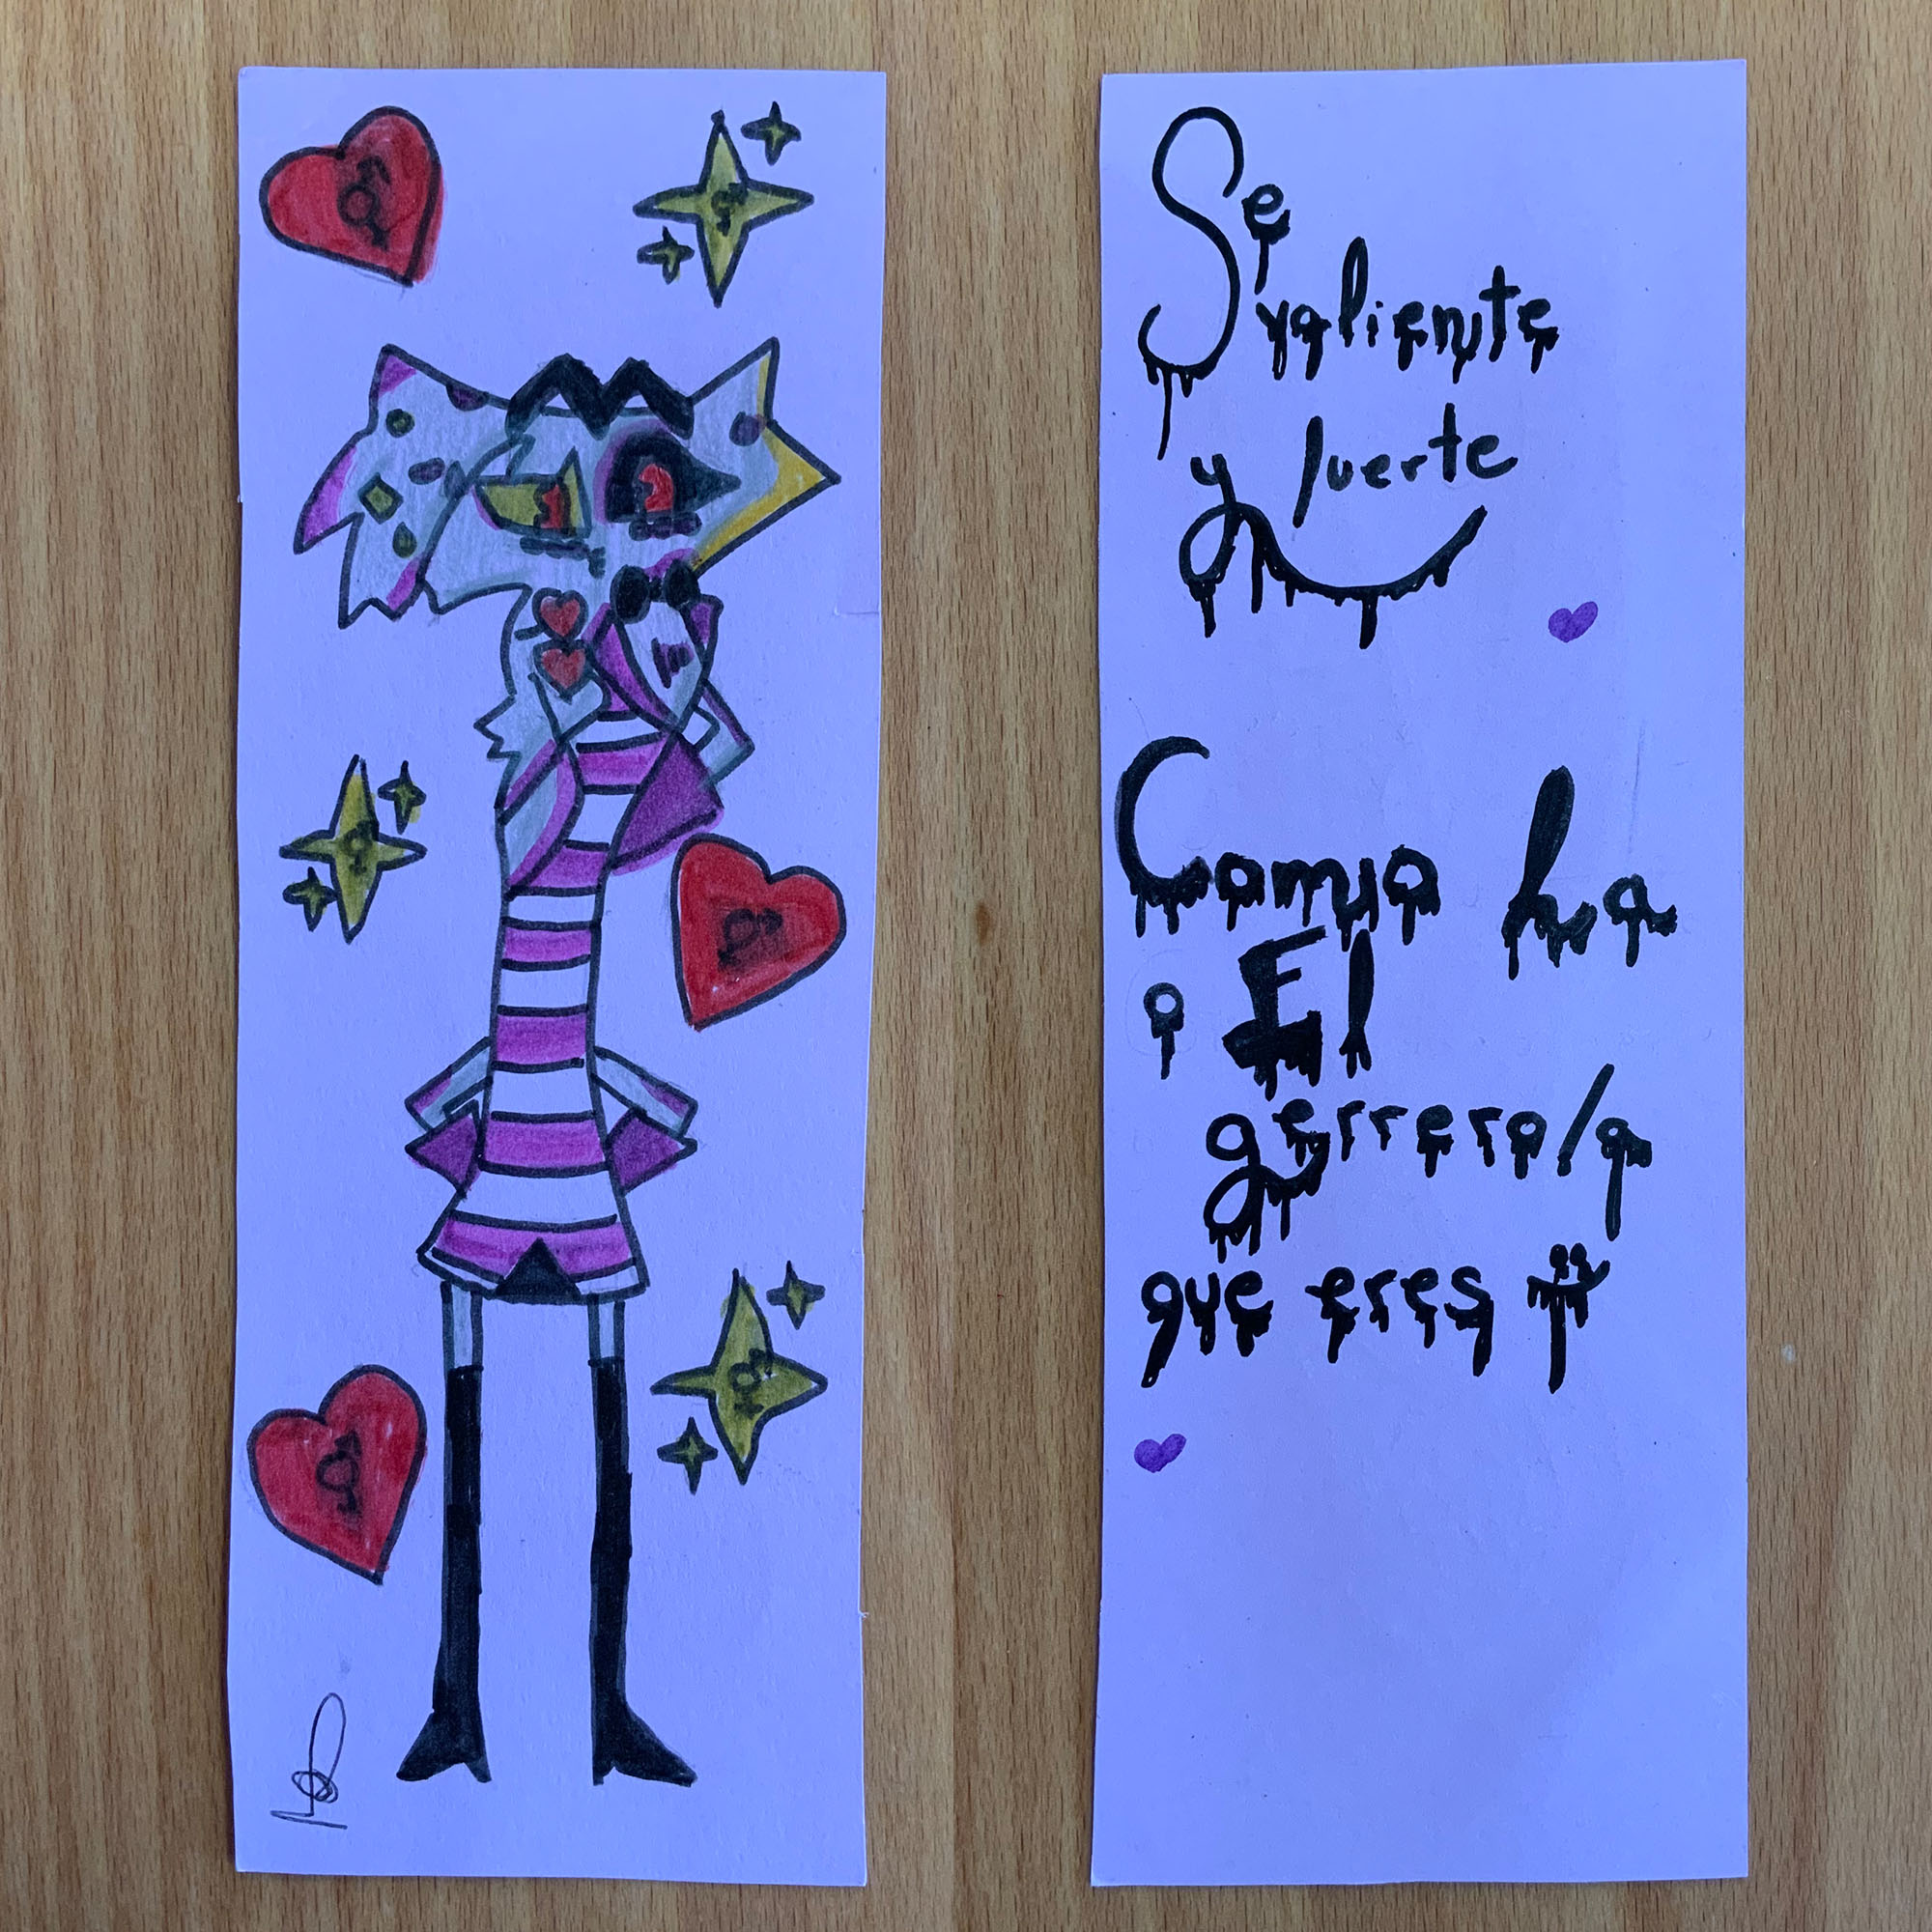 Se
valiente
y fuerte
Como la
o El
gerrero/a
que eres